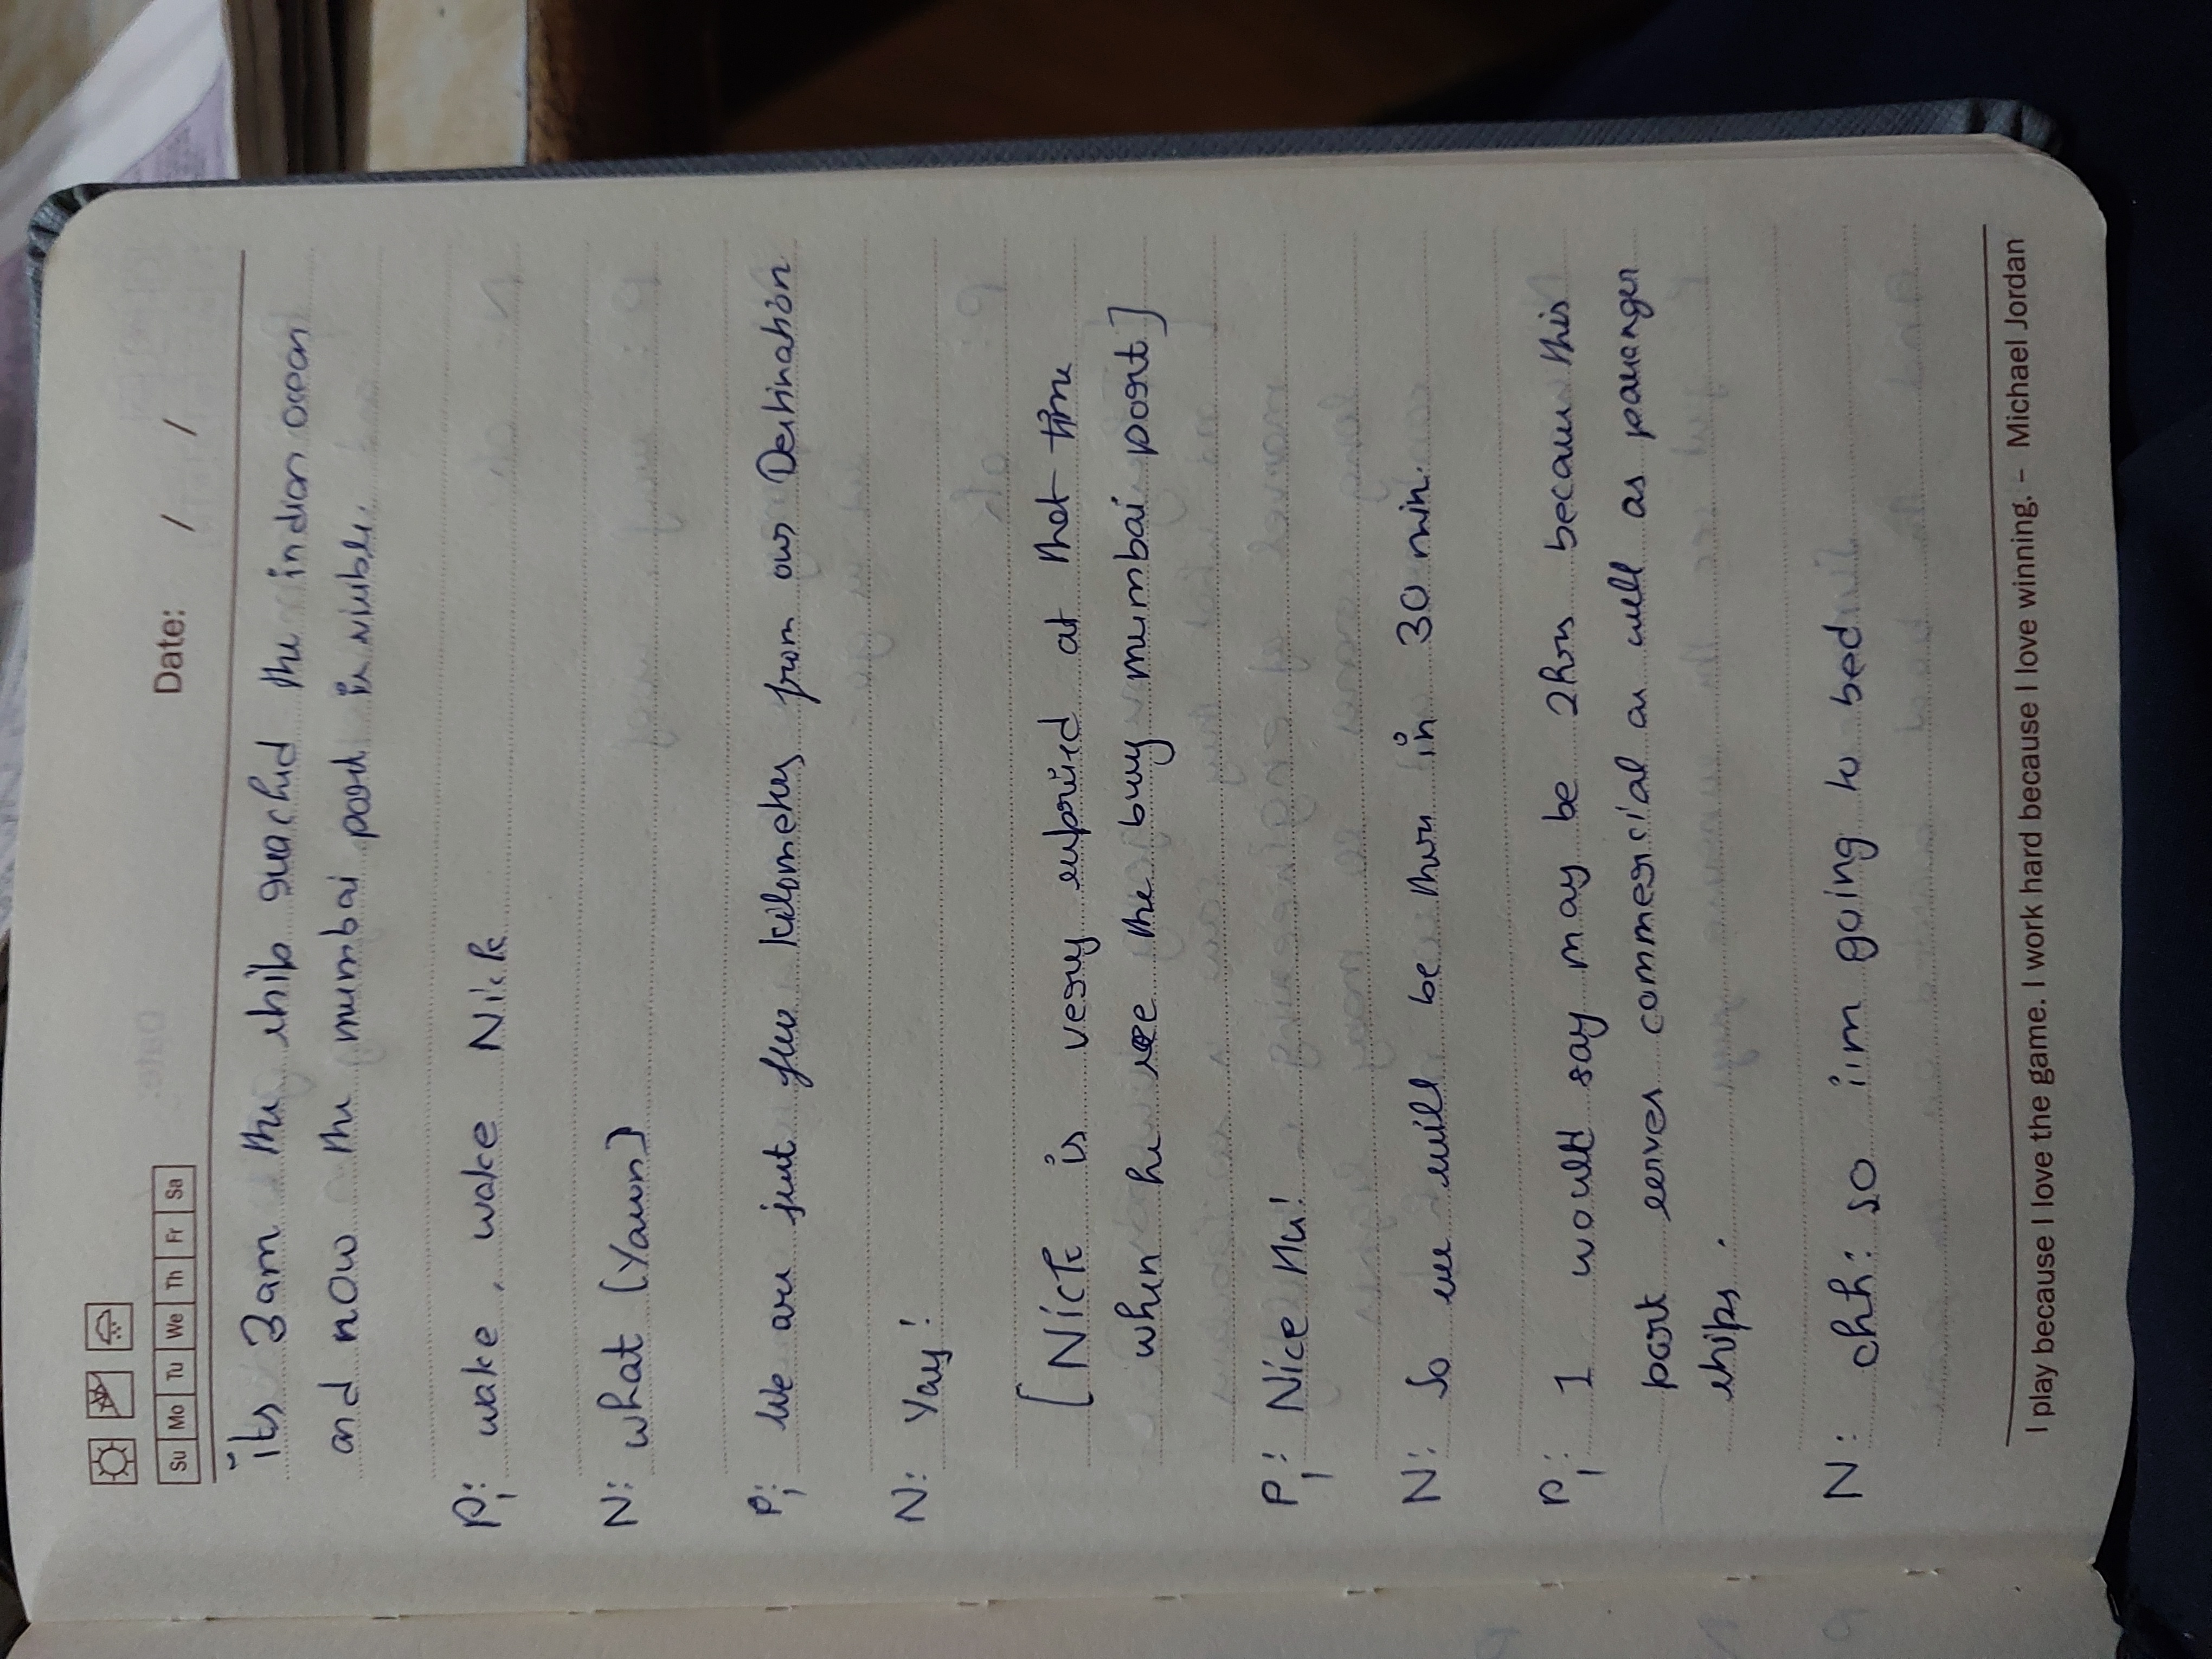 Su Mo Tu We Th Fr Sa
Date: / /
its 3am the ship reached the indian ocean
and now the mumbai port is visible.
P: wake, wake Nick
N: what (Yawn)
P: We are just few kilometers from our Destination
N: Yay!
[Nick is very suprised at that time
when he see the busy mumbai port]
P: Nice Hu!
N: So we will be there in 30 min.
P: I would say may be 2hrs because this
port serves commercial as well as passanger
ships.
N: ohh: so i'm going to bed
I play because I love the game. I work hard because I love winning. – Michael Jordan